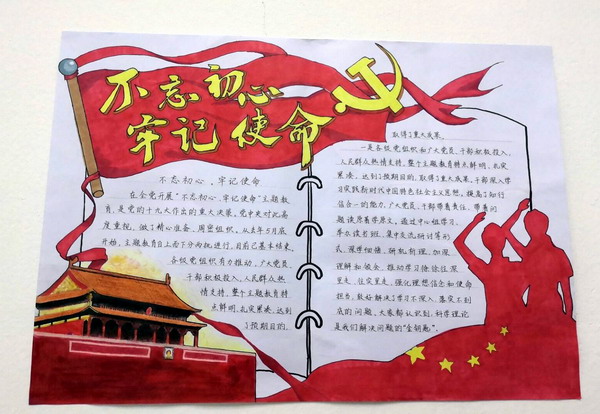 不忘初心
牢记使命
不忘初心、牢记使命
在全党开展"不忘初心、牢记使命"主题教
育,是党的十九大作出的重大决策。党中央对此高
度重视,做了精心准备、周密组织。从去年5月底
开始,主题教育自上而下分两批进行,目前已基本结束。
各级党组织有力推动,广大党员、
干部积极投入,人民群众热
情支持,整个主题教育特
点鲜明、扎实紧凑,达到
了预期目的,
取得了重大成果。
一是各级党组织和广大党员、干部积极投入,
人民群众热情支持,整个主题教育特点鲜明、扎实
紧凑,达到了预期目的,取得了重大成果,干部深入学
习实践新时代中国特色社会主义思想,提高了知行
合一的能力。广大党员、干部带着责任、带着问
题读原著学原文,通过中心组学习、
举办读书班、集中交流研讨等形
式,深学细悟、研机析理,加深
理解和领会,推动学习往
里走、往实里走,强化理想信念和使命
担当,较好解决了学习不深入、落实不到
底的问题。大家都认识到,科学理论
是我们解决问题的"金钥匙"。